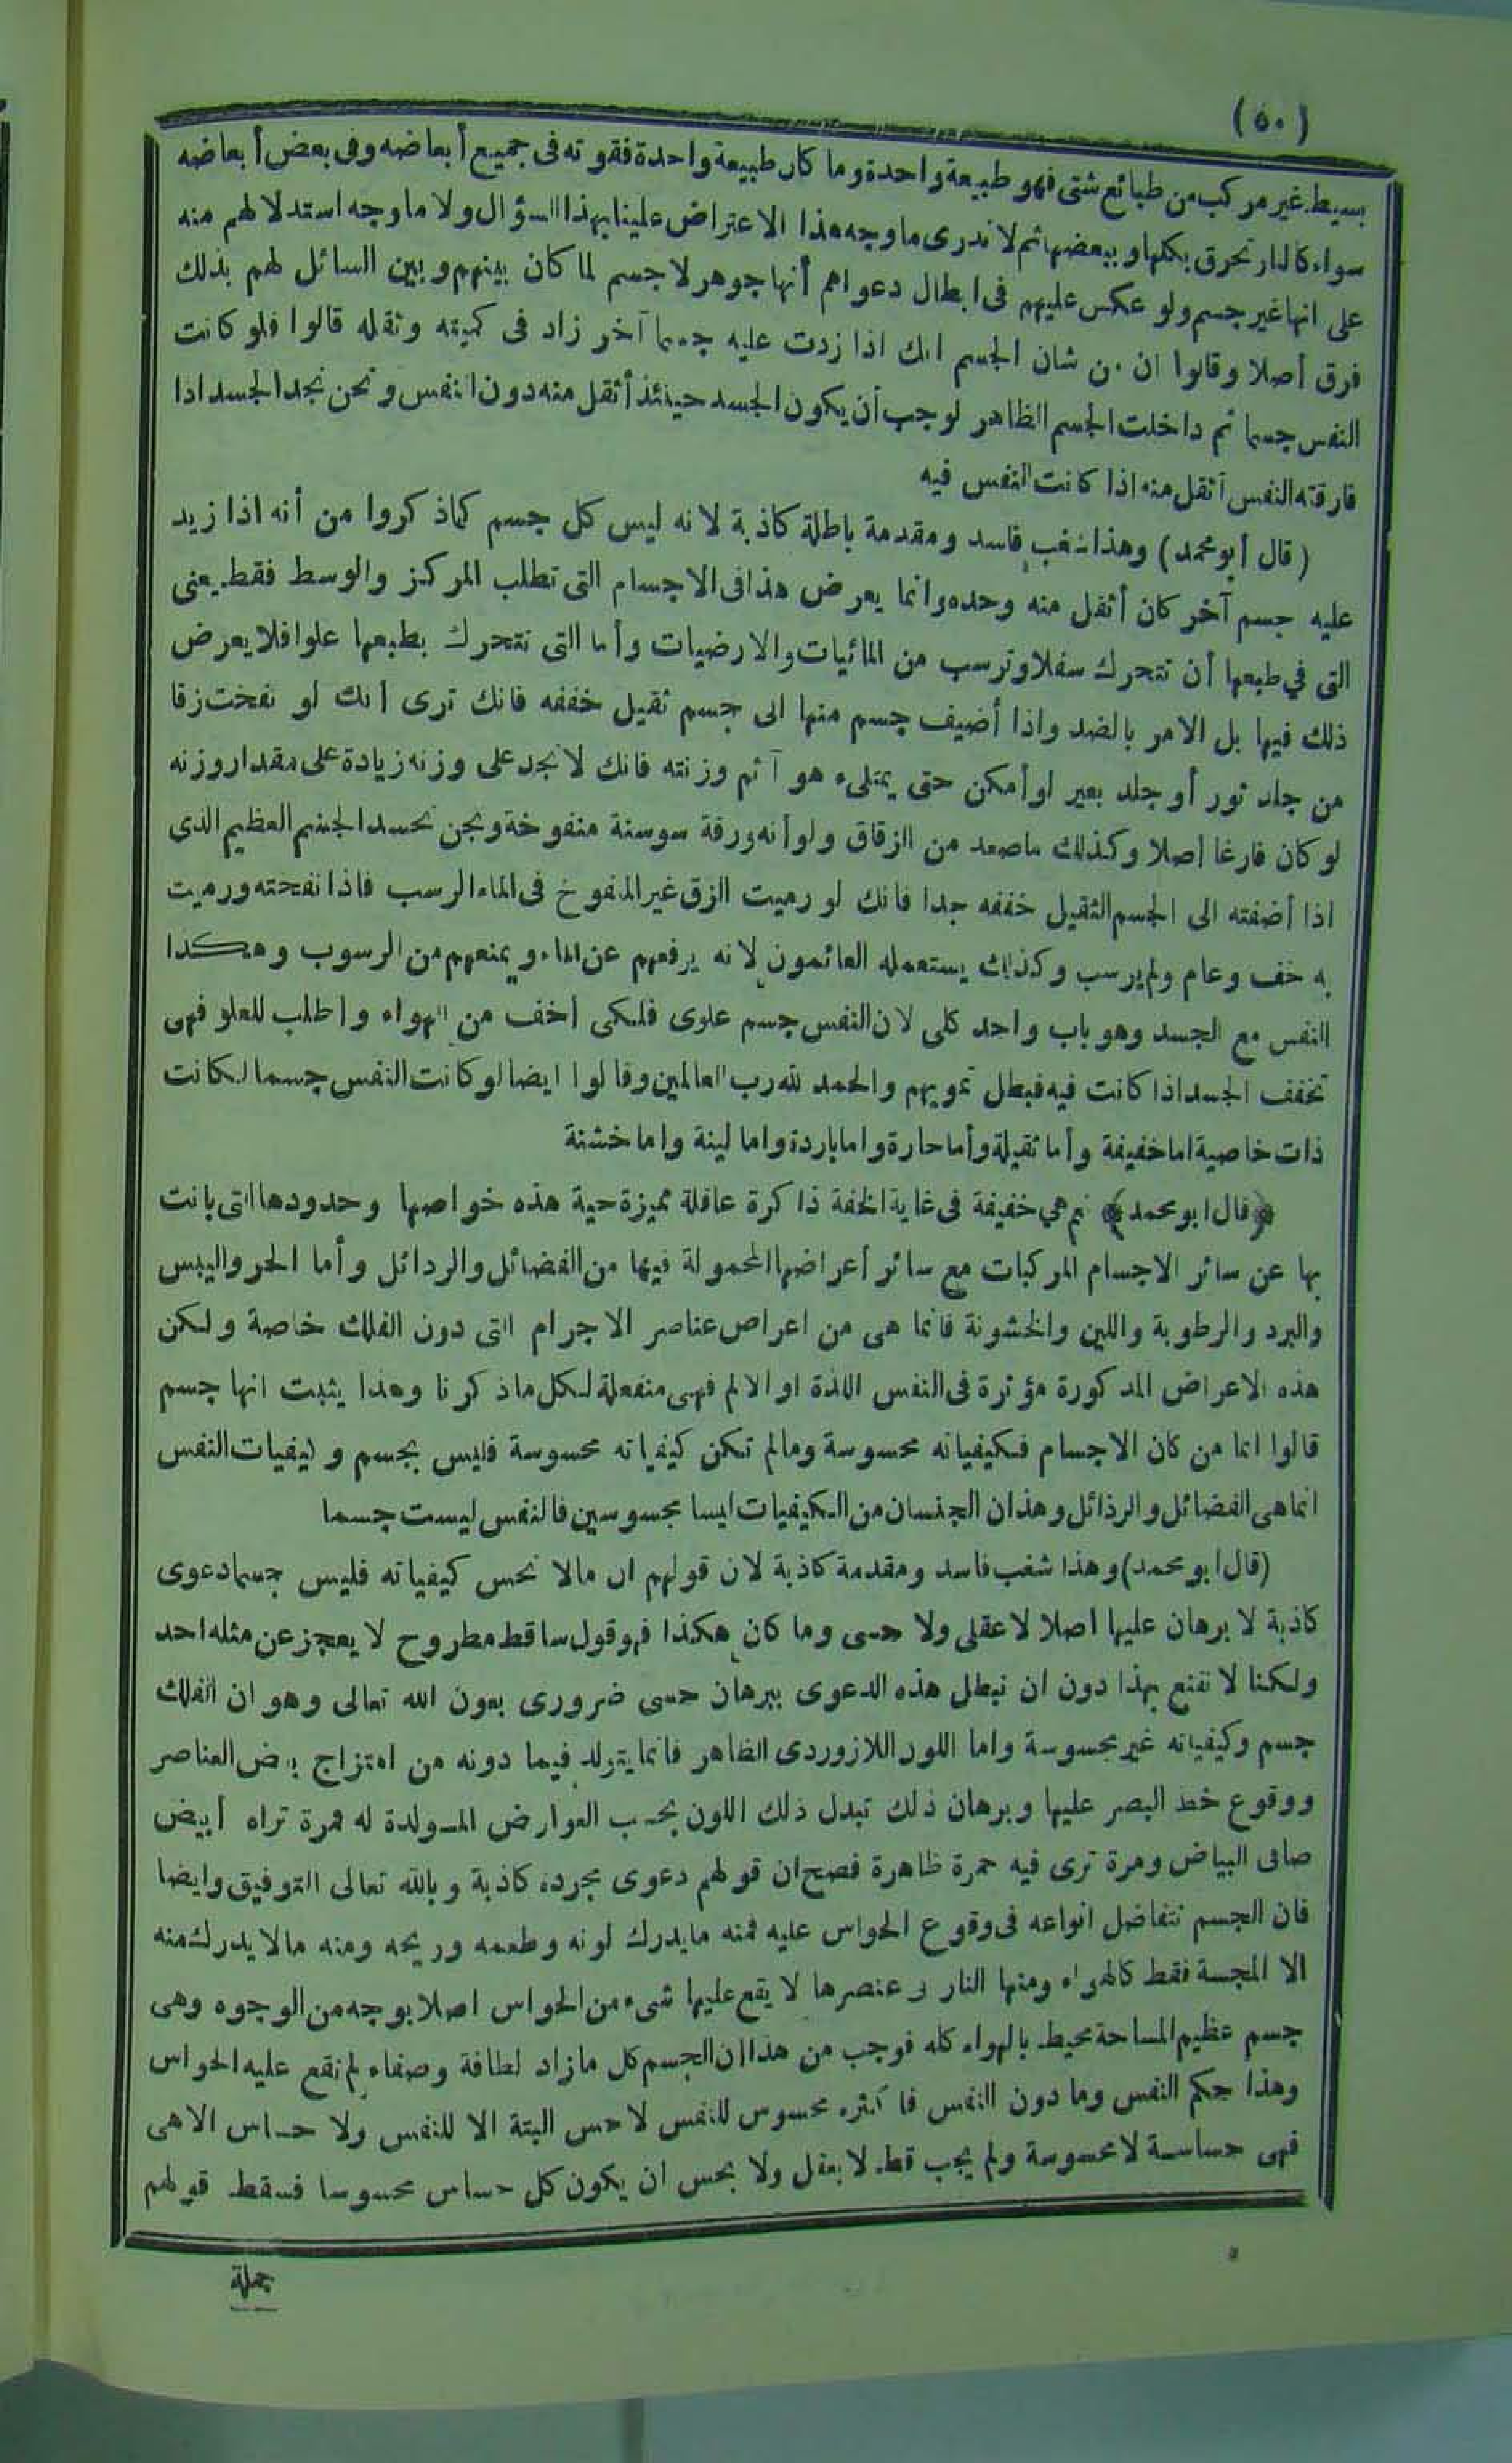 (٥٠)
بسيط غير مركب من طبائع شتى فهو طبيعة واحدة وما كان طبيعة واحدة فقوته فى جميع أبعاضه وفى بعض أبعاضه
سواء كالنار تحرق بكلها وببعضها ثم لا ندرى ما وجه هذا الاعتراض علينا بهذا السؤال ولا ما وجه استدلالهم منه
على انها غير جسم ولو عكس عليهم فى ابطال دعواهم أنها جوهر لا جسم لما كان بينهم وبين السائل لهم بذلك
فرق أصلا وقالوا ان من شان الجسم انك اذا زدت عليه جسما آخر زاد فى كميته وثقله قالوا فلو كانت
النفس جسما ثم داخلت الجسم الظاهر لوجب أن يكون الجسد حينئذ أثقل منه دون النفس ونحن نجد الجسد اذا
فارقته النفس أثقل منه اذا كانت النفس فيه
(قال أبو محمد) وهذا شغب فاسد ومقدمة باطلة كاذبة لانه ليس كل جسم كما ذكروا من أنه اذا زيد
عليه جسم آخر كان أثقل منه وحده وانما يعرض هذا فى الاجسام التى تطلب المركز والوسط فقط يعنى
التى في طبعها أن تتحرك سفلا وترسب من المائيات والارضيات وأما التى تتحرك بطبعها علوا فلا يعرض
ذلك فيها بل الامر بالضد واذا أضيف جسم منها الى جسم ثقيل خففه فانك ترى أنك لو نفخت زقا
من جلد ثور أو جلد بعير لو أمكن حتى يمتلىء هوآ ثم وزنته فانك لا تجد على وزنه زيادة على مقدار وزنه
لو كان فارغا أصلا وكذلك ما صعد من الزقاق ولو أنه ورقة سوسنة منفوخة ونحن نجد الجسم العظيم الذى
اذا أضفته الى الجسم الثقيل خففه جدا فانك لو رميت الزق غير المنفوخ فى الماء الرسب فاذا نفخته ورميت
به خف وعام ولم يرسب وكذلك يستعمله العائمون لانه يرفعهم عن الماء ويمنعهم من الرسوب وهكذا
النفس مع الجسد وهو باب واحد كلى لان النفس جسم علوى فلكى أخف من الهواء واطلب للعلو فهى
تخفف الجسد اذا كانت فيه فبطل تمويههم والحمد لله رب العالمين وقالوا ايضا لو كانت النفس جسما لكانت
ذات خاصية اما خفيفة وأما ثقيلة وأما حارة واما باردة واما لينة واما خشنة
﴿قال ابو محمد﴾ نعم هي خفيفة فى غاية الخفة ذاكرة عاقلة مميزة حية هذه خواصها وحدودها التى بانت
بها عن سائر الاجسام المركبات مع سائر أعراضها المحمولة فيها من الفضائل والرذائل وأما الحر واليبس
والبرد والرطوبة واللين والخشونة فانما هى من اعراض عناصر الاجرام التى دون الفلك خاصة ولكن
هذه الاعراض المذكورة مؤثرة فى النفس اللذة او الالم فهى منفعلة لكل ما ذكرنا وهذا يثبت انها جسم
قالوا انما من كان الاجسام فكيفياته محسوسة ومالم تكن كيفياته محسوسة فليس بجسم وكيفيات النفس
انما هى الفضائل والرذائل وهذان الجنسان من الكيفيات ليسا بمحسوسين فالنفس ليست جسما
(قال ابو محمد) وهذا شغب فاسد ومقدمة كاذبة لان قولهم ان مالا تحس كيفياته فليس جسما دعوى
كاذبة لا برهان عليها اصلا لا عقلى ولا حسى وما كان هكذا فهو قول ساقط مطروح لا يعجز عن مثله احد
ولكنا لا نقنع بهذا دون ان نبطل هذه الدعوى ببرهان حسى ضرورى بعون الله تعالى وهو ان الفلك
جسم وكيفياته غير محسوسة واما اللون اللازوردى الظاهر فانما يتولد فيما دونه من امتزاج بعض العناصر
ووقوع خط البصر عليها وبرهان ذلك تبدل ذلك اللون بحسب العوارض المولدة له فمرة تراه أبيض
صافى البياض ومرة ترى فيه حمرة ظاهرة فصح ان قولهم دعوى مجردة كاذبة وبالله تعالى التوفيق وايضا
فان الجسم تتفاضل انواعه فى وقوع الحواس عليه فمنه ما يدرك لونه وطعمه وريحه ومنه مالا يدرك منه
الا المجسة فقط كالهواء ومنها النار فى عنصرها لا يقع عليها شىء من الحواس اصلا بوجه من الوجوه وهى
جسم عظيم المساحة محيط بالهواء كله فوجب من هذا ان الجسم كل ما زاد لطافة وصفاء لم تقع عليه الحواس
وهذا حكم النفس وما دون النفس فاكثره محسوس للنفس لا حس البتة الا للنفس ولا حساس الا هى
فهى حساسة لا محسوسة ولم يجب قط لا بعقل ولا بحس ان يكون كل حساس محسوسا فسقط قولهم
جملة